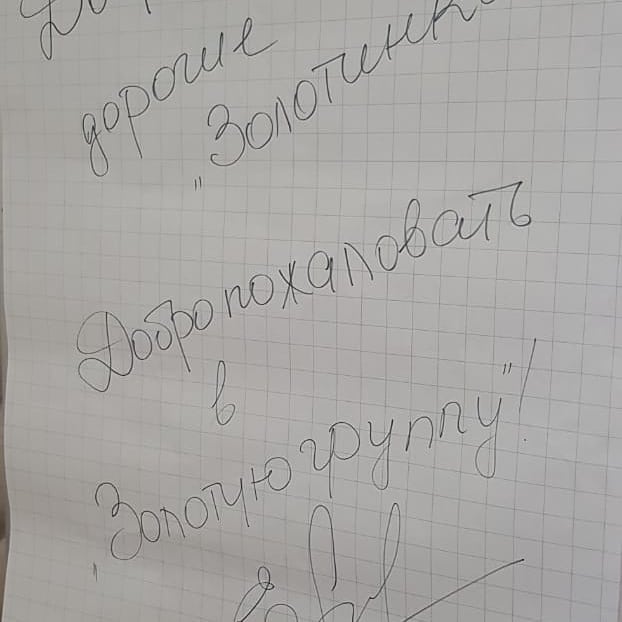 дорогие
„Золотинк
Добро пожаловать
в
„Золотую группу"!